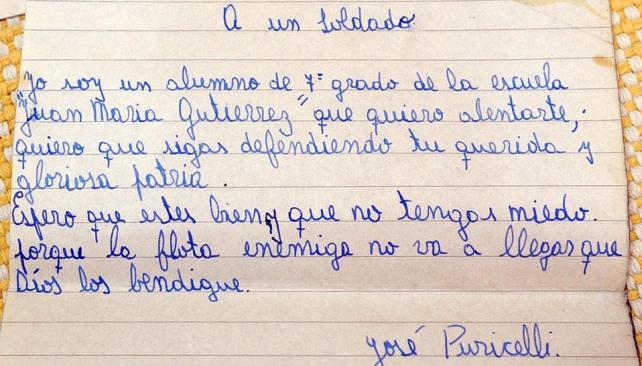 A un soldado
Yo soy un alumno de 7º grado de la escuela
"Juan Maria Gutierrez" que quiero alentarte,
quiero que sigas defendiendo tu querida y
gloriosa patria.
Espero que estes bien y que no tengas miedo.
porque la flota enemiga no va a llegar que
Dios los bendigue.
José Puricelli.